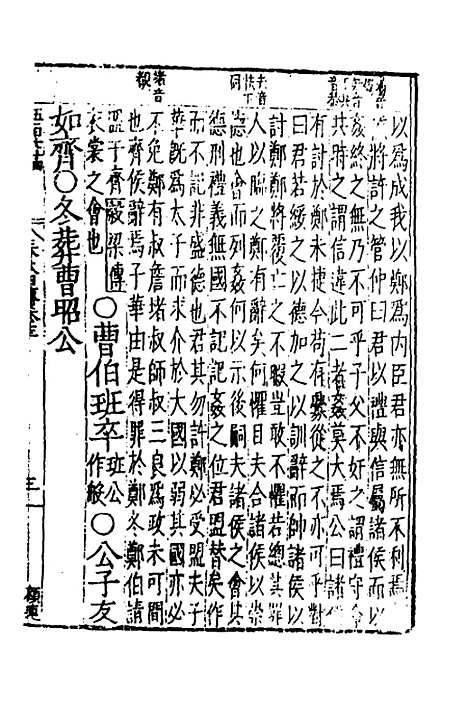 以爲成我以鄭爲内臣君亦無所不利焉
將許之管仲曰君以禮與信屬諸侯而以
姦終之無乃不可乎子父不奸之謂禮守命
共時之謂信違此二者姦莫大焉公曰諸侯
有討於鄭未捷今苟有釁從之不亦可乎對
曰君若綏之以德加之以訓辭而帥諸侯以
討鄭鄭將覆亡之不暇豈敢不懼若總其罪
人以臨之鄭有辭矣何懼且夫合諸侯以崇
德也會而列姦何以示後嗣夫諸侯之會其
德刑禮義無國不記記姦之位君盟替矣作
而不記非盛德也君其勿許鄭必受盟夫子
華既爲太子而求介於大國以弱其國亦必
不免鄭有叔詹堵叔師叔三良爲政未可間
也齊侯辭焉子華由是得罪於鄭冬鄭伯請
盟于齊榖梁傳
衣裳之會也
○曹伯班卒
班公
作般
○公子友
如齊○冬葬曹昭公